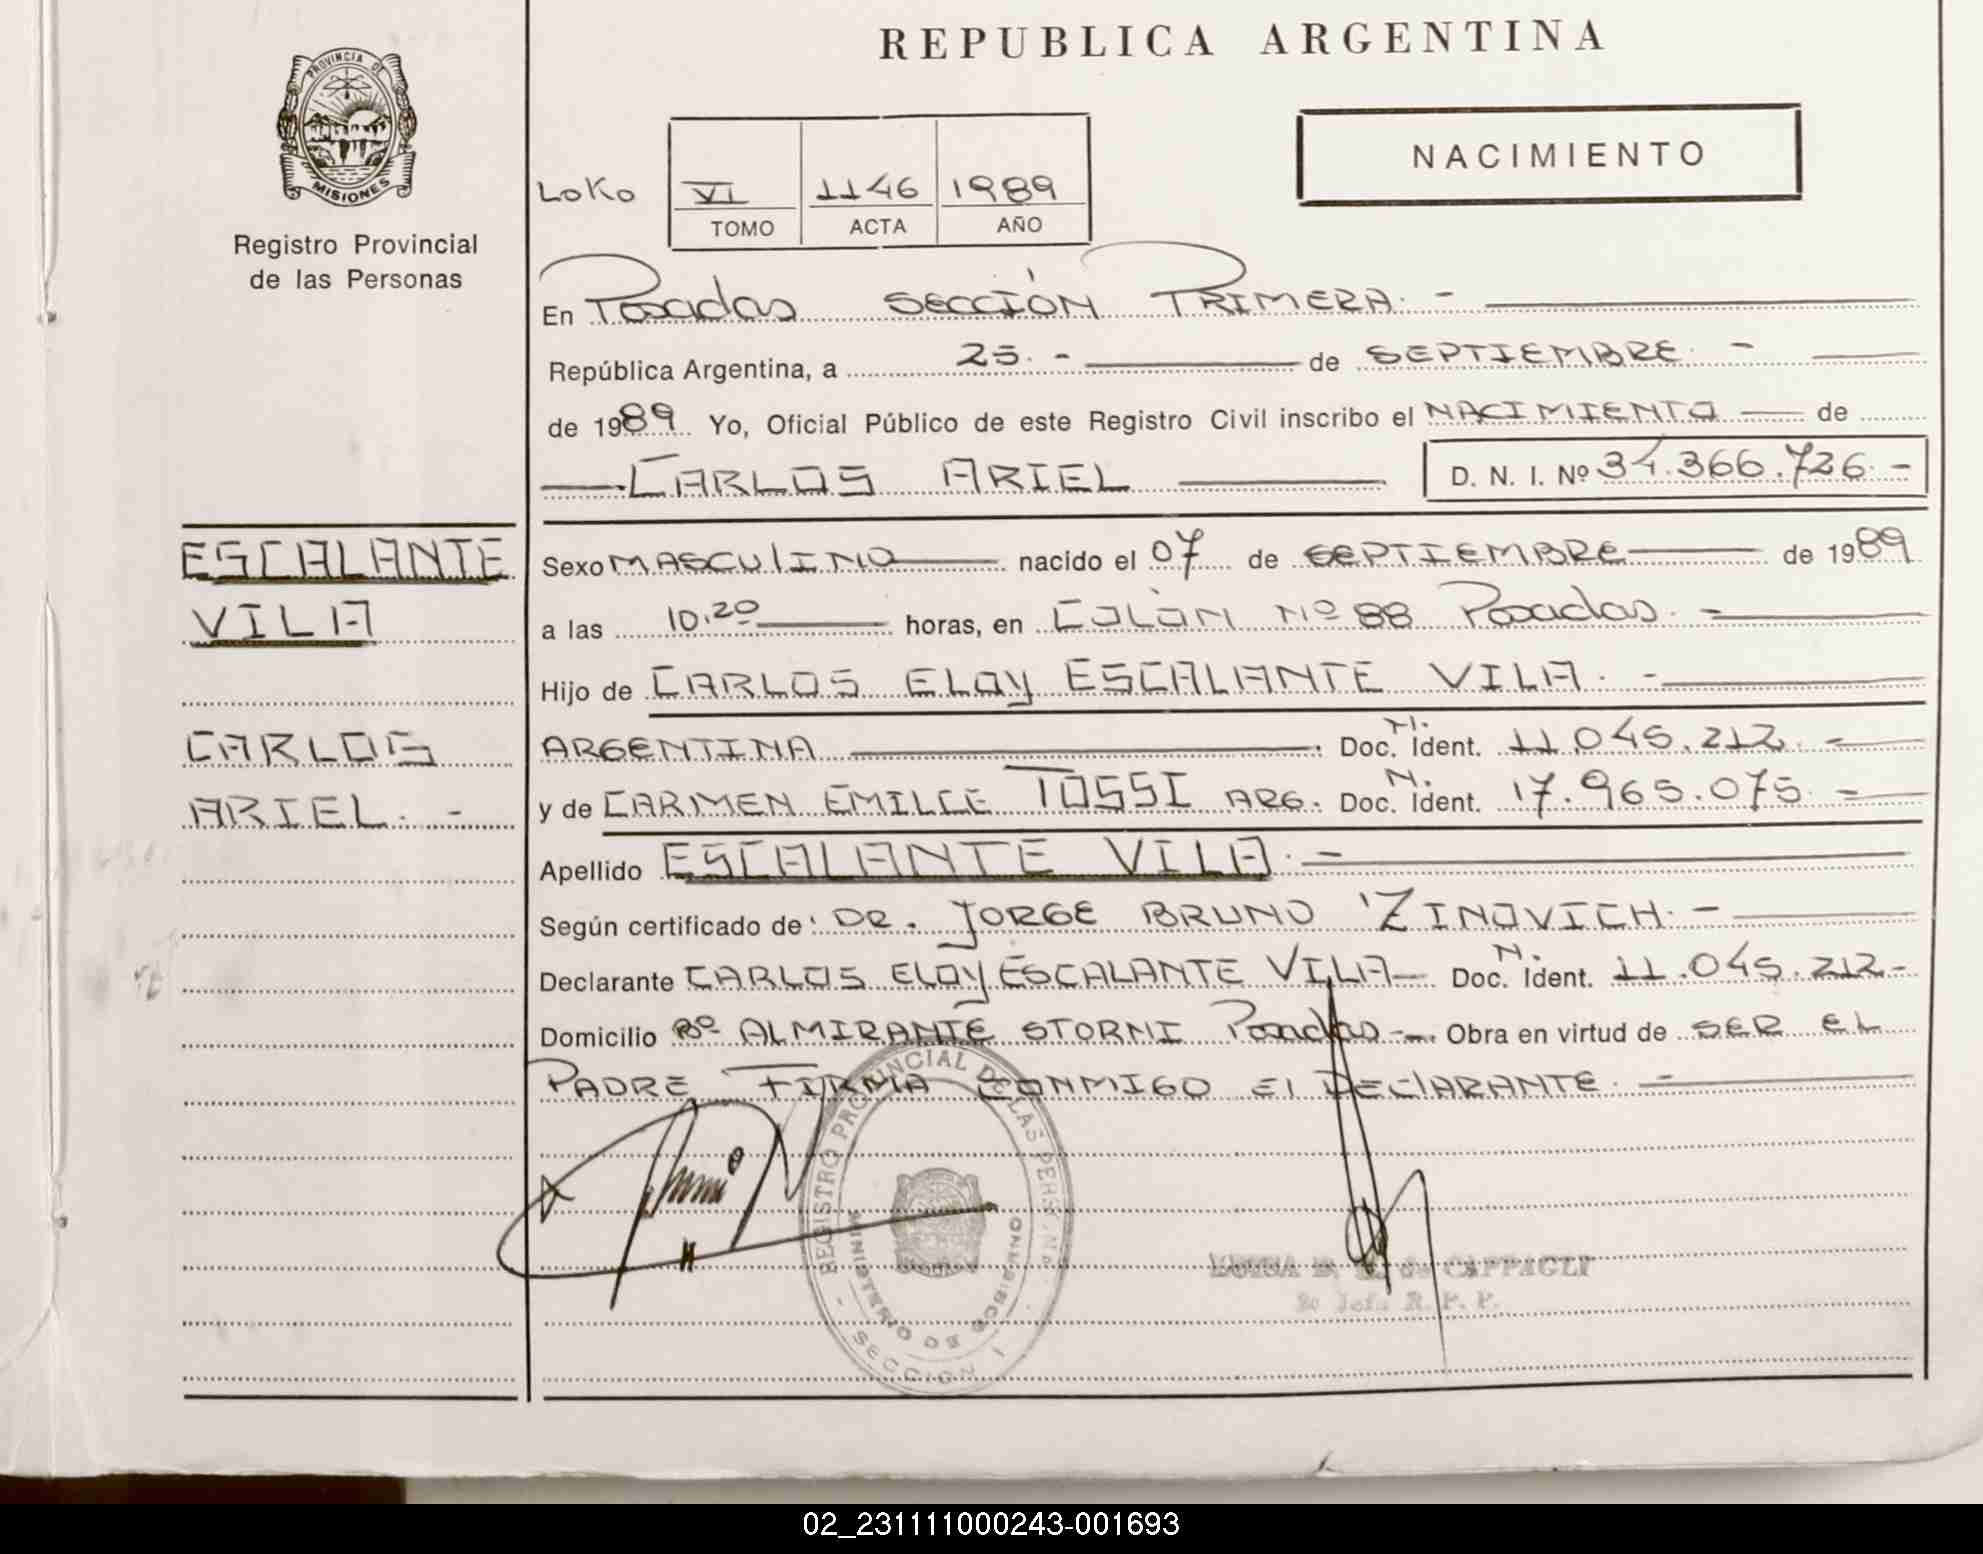 REPUBLICA ARGENTINA
PROVINCIA DE
MISIONES
Registro Provincial
de las Personas
NACIMIENTO
Loko VI 1146 1989
TOMO ACTA AÑO
En Posadas SECCIÓN PRIMERA. -
República Argentina, a 25. - de SEPTIEMBRE. -
de 1989. Yo, Oficial Público de este Registro Civil inscribo el NACIMIENTO de
CARLOS ARIEL D. N. I. Nº 34.366.726. -
ESCALANTE
VILA
CARLOS
ARIEL. -
Sexo MASCULINO nacido el 07 de SEPTIEMBRE de 1989
a las 10,20 horas, en COLÓN Nº 88 Posadas. -
Hijo de CARLOS ELOY ESCALANTE VILA. -
ARGENTINA. Doc. N. Ident. 11.045.212. -
y de CARMEN EMILCE TOSSI ARG. Doc. N. Ident. 17.965.075. -
Apellido ESCALANTE VILA. -
Según certificado de DR. JORGE BRUNO ZINOVICH. -
Declarante CARLOS ELOY ESCALANTE VILA Doc. N. Ident. 11.045.212-
Domicilio Bº ALMIRANTE STORNI Posadas -. Obra en virtud de SER EL
PADRE FIRMA CONMIGO El DEClARANTE. -
REGISTRO PROVINCIAL DE LAS PERSONAS
MINISTERIO DE GOBIERNO
- SECCION I -
de CAPPAGLI
R. P. P.
02_231111000243-001693